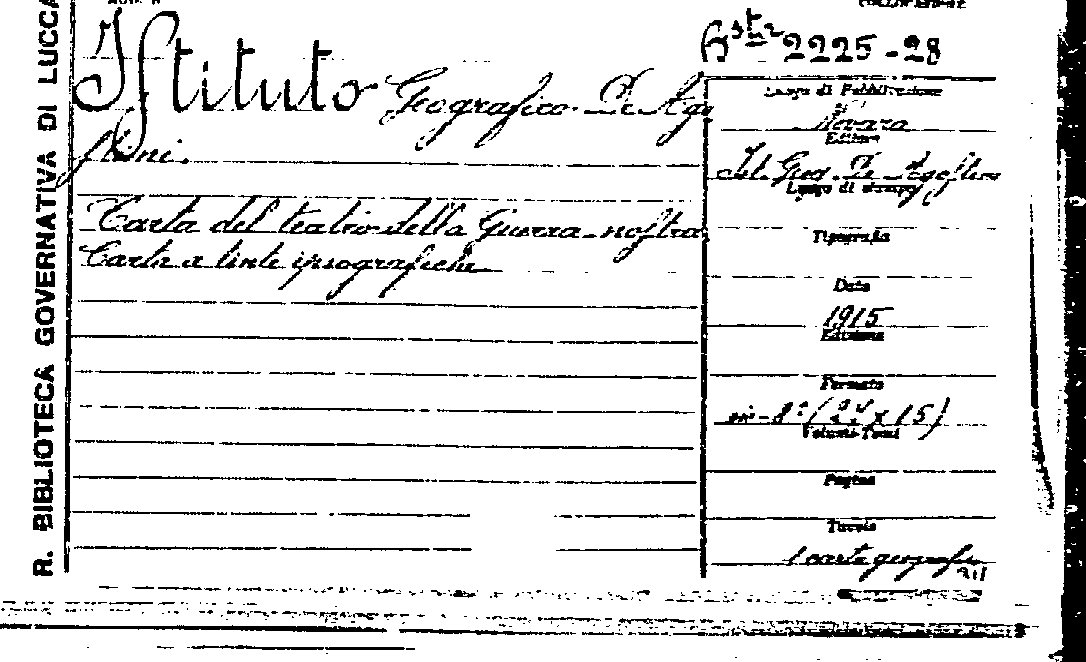 R. BIBLIOTECA GOVERNATIVA DI LUCCA
Istituto Geografico De Ago
stini.
Carta del teatro della Guerra nostra
Carta a tinte ipsografiche
2225-28
Luogo di Pubblicazione
Novara
Editore
Ist. Geog. De Agostini
Luogo di stampa
Tipografia
Data
1915
Edizione
Formato
in-8º (24 x 15)
Volumi-Tomi
Pagine
Tavole
1 carta geograf